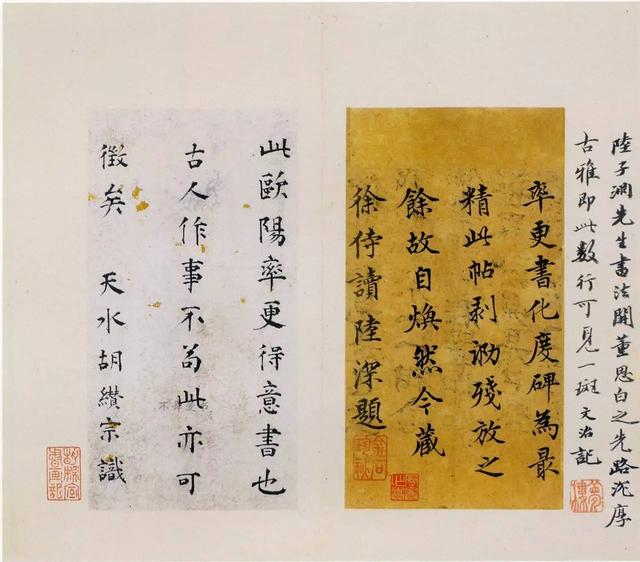 陸子淵先生書法開董思白之先路沈厚
古雅即此數行可見一斑文治記
率更書化度碑為最
精此帖剥泐殘放之
餘故自煥然今藏
徐侍讀陸深題
此歐陽率更得意書也
古人作事不苟此亦可
徵矣 天水胡纘宗識